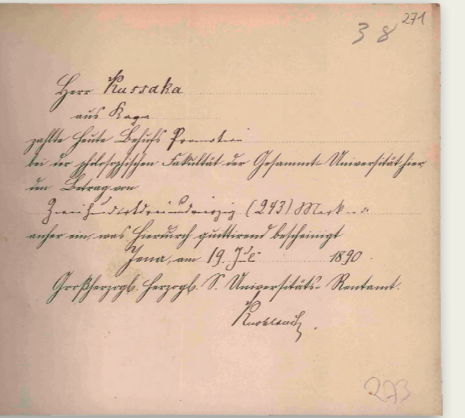 271
38
Herr Kussaka
aus Kaga
zahlte heute Behufs Promotion
bei der philosophischen Fakultät der Gesammt-Universität hier
den Betrag von
Zweihundertdreiundvierzig (243) Mark
anher ein, was hierdurch quittirend bescheinigt
Jena, am 19 Juli 1890.
Großherzogl. Herzogl. S. Universitäts-Rentamt.
273